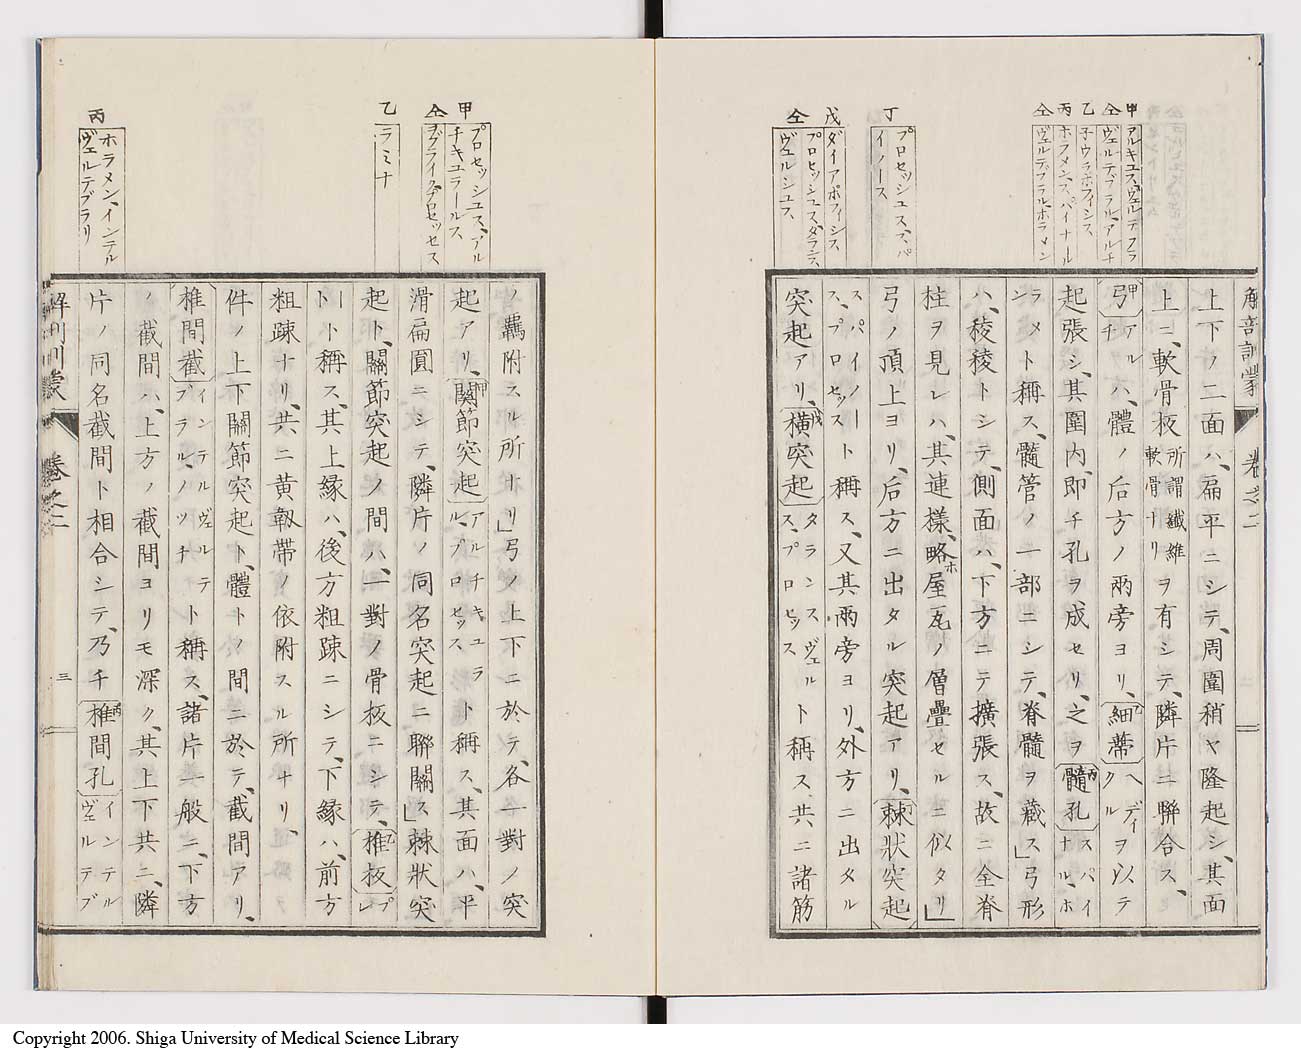 解剖訓蒙 卷之二
甲 アルキユス、ヴェルテブラ
仝 ヴェルテブラル、アルチ
乙 子ウラホフィシス
丙 ホラメンス、パイナール
仝 ヴェルテブラル、ホラメン
丁 プロセッシュスス、パイノース
戊 ダイアポフィシス
仝 プロセッシュス、ダランスヴェルシュス
上下ノ二面ハ、扁平ニシテ、周圍稍ヤ隆起シ、其面
上ニ、軟骨板 所謂纖維軟骨ナリ ヲ有シテ、隣片ニ聯合ス、
弓 アルチ ハ、體ノ后方ノ兩旁ヨリ、細蒂 ヘディクル ヲ以テ
起張シ、其圍內、即チ孔ヲ成セリ、之ヲ髓孔 スパイナル、ホ
ラメン ト稱ス、髓管ノ一部ニシテ、脊髓ヲ藏ス」弓形
ハ、稜稜トシテ、側面ハ、下方ニテ擴張ス、故ニ全脊
柱ヲ見レハ、其連樣、略ホ屋瓦ノ層疊セルニ似タリ」
弓ノ頂上ヨリ、后方ニ出タル突起アリ、棘狀突起
スパイノースス、プロセッス ト稱ス、又其兩旁ヨリ、外方ニ出タル
突起アリ、橫突起 タランスヴェルス、プロセッス ト稱ス、共ニ諸筋
甲 プロセッシュス、アルチキユラールス
仝 ヲブライス、プロセッセス
乙 ラミナ
丙 ホラメン、インテルヴェルテブラリ
ノ羈附スル所ナリ」弓ノ上下ニ於テ、各一對ノ突
起アリ、關節突起 アルチキュラル、プロセッス ト稱ス、其面ハ、平
滑扁圓ニシテ、隣片ノ同名突起ニ聯關ス」棘狀突
起ト、關節突起ノ間ハ、一對ノ骨板ニシテ、椎板 プレ
ート ト稱ス、其上緣ハ、後方粗疎ニシテ、下緣ハ、前方
粗疎ナリ、共ニ黃韌帶ノ依附スル所ナリ、
件ノ上下關節突起ト、體トノ間ニ於テ、截間アリ、
椎間截 インテルヴェルテブラル、ノツチ ト稱ス、諸片一般ニ、下方
ノ截間ハ、上方ノ截間ヨリモ深ク、其上下共ニ、隣
片ノ同名截間ト相合シテ、乃チ椎間孔 インテルヴェルテブ
解剖訓蒙 卷之二 三
Copyright 2006. Shiga University of Medical Science Library